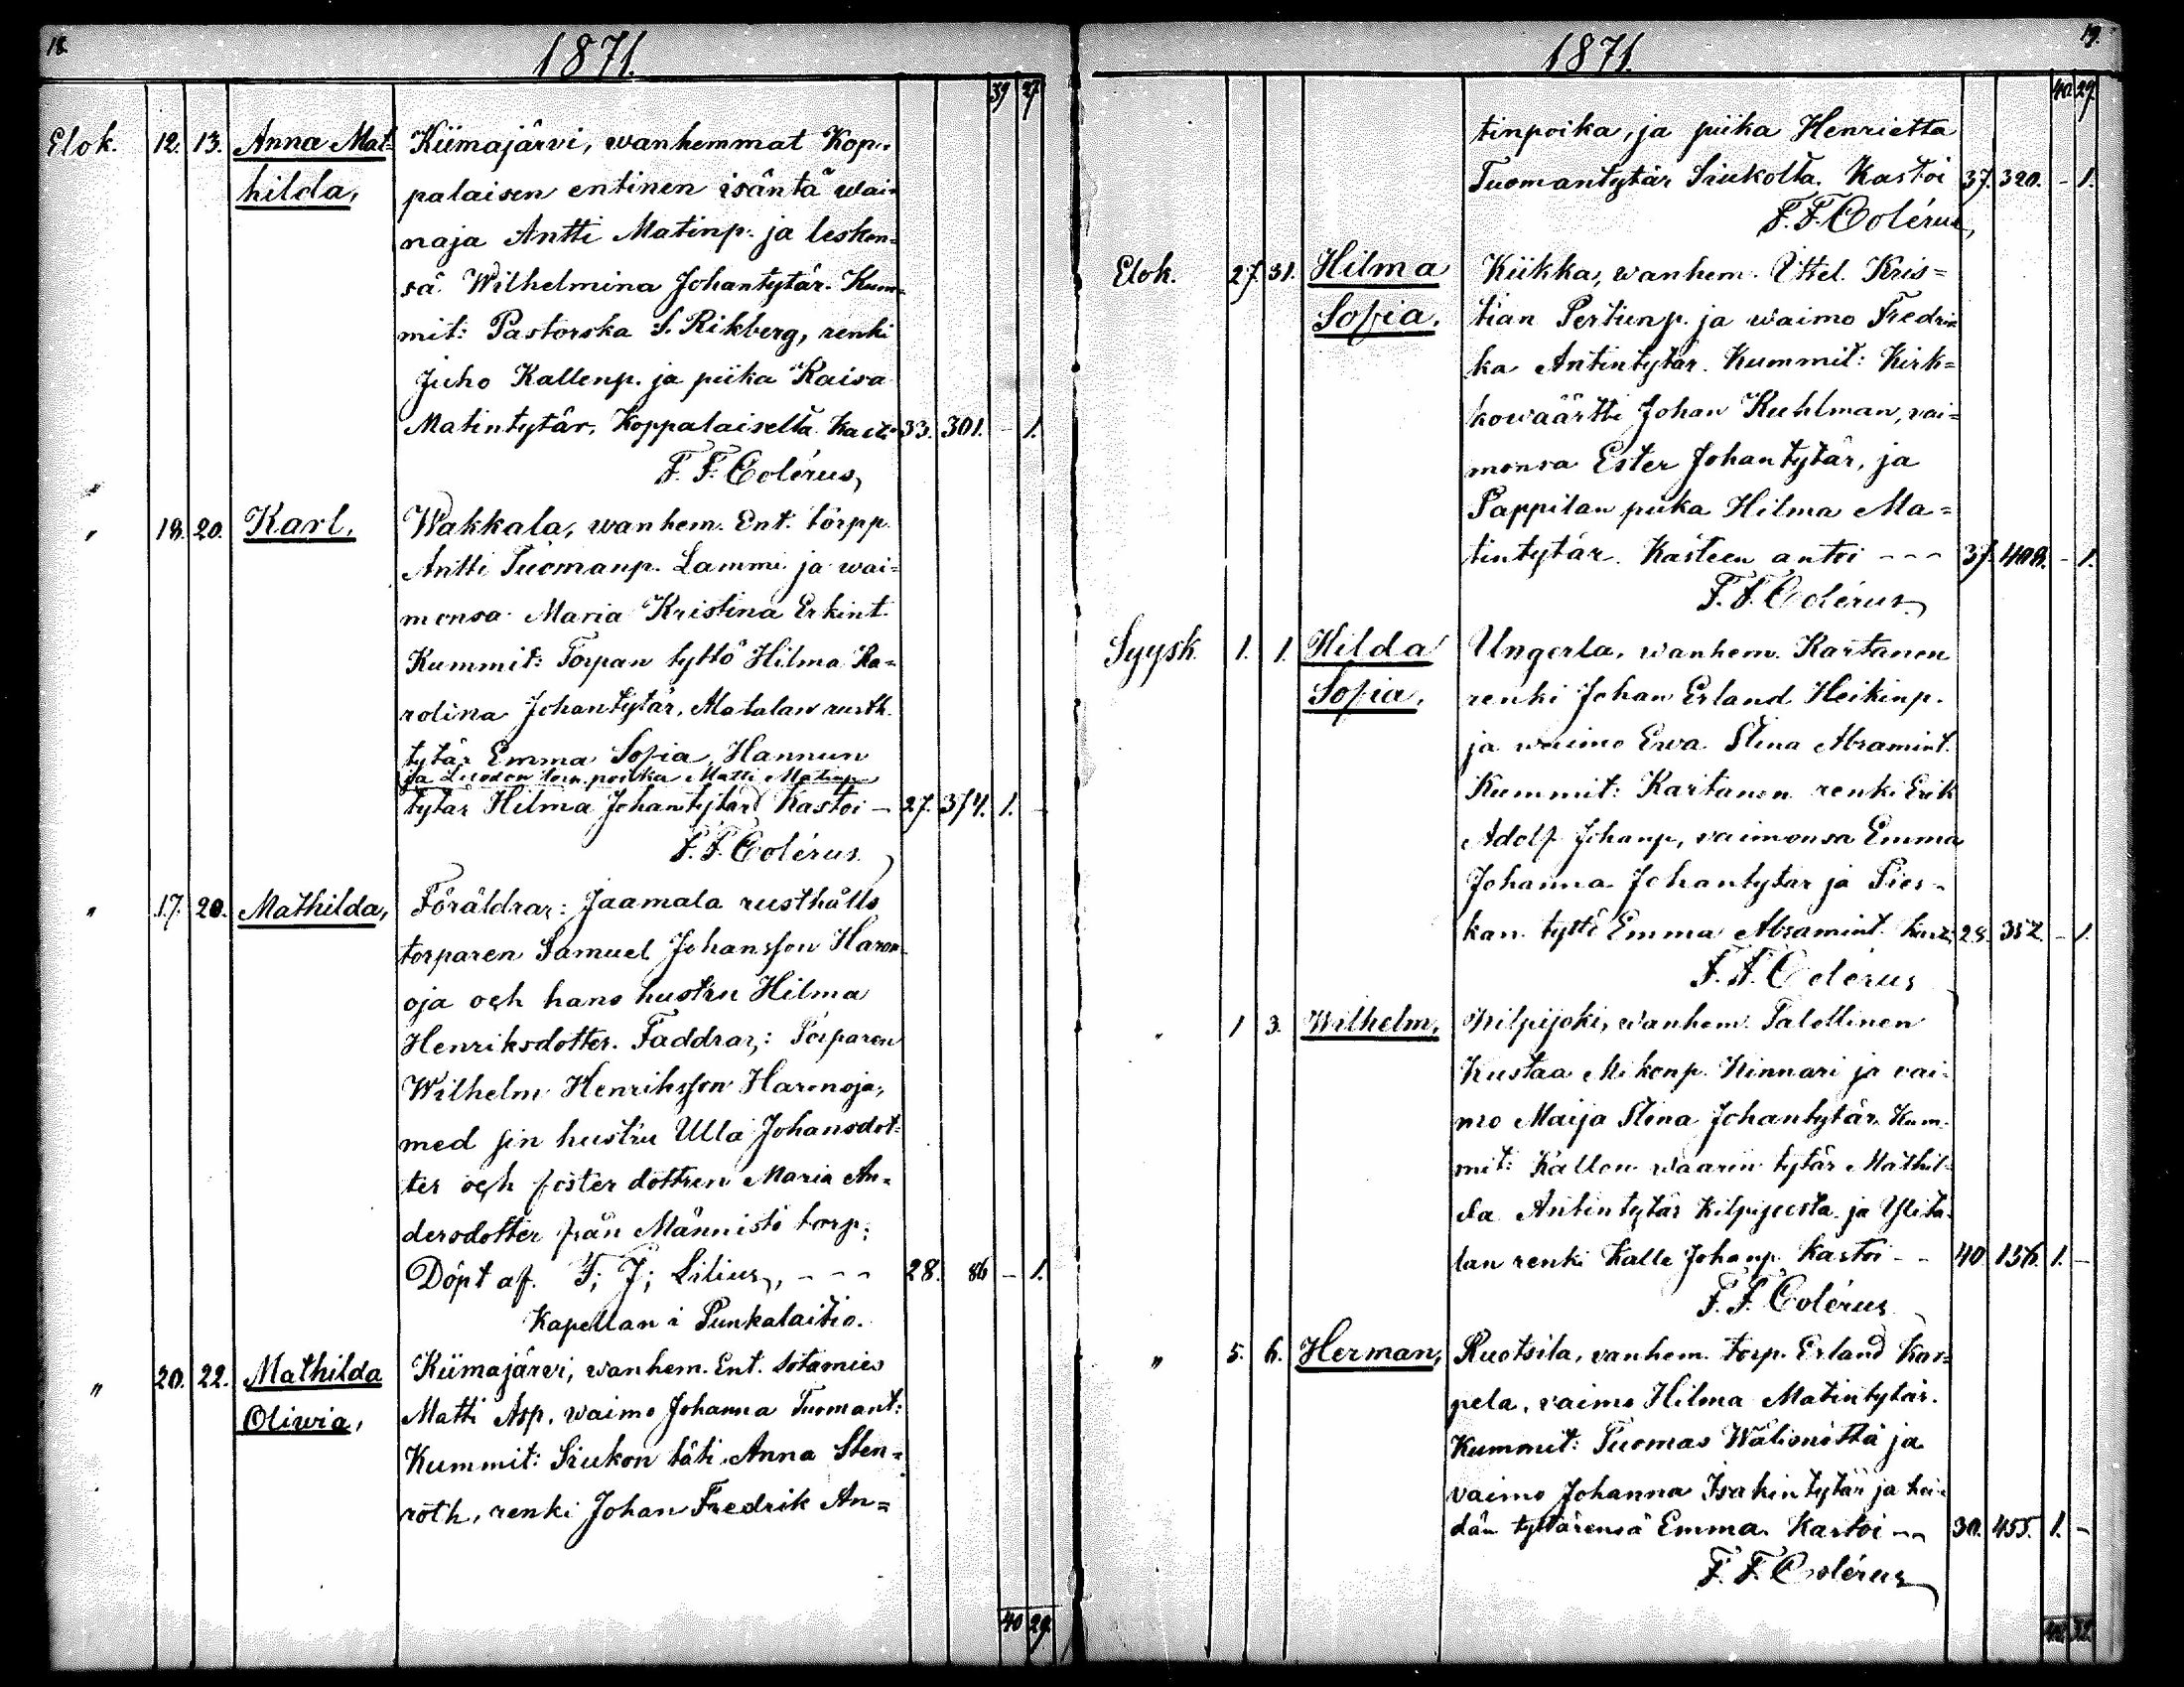 18.
1871.
39 27.
Elok. 12. 13. Anna Mat= Kiimajärvi, wanhemmat Kop=
hilda, palaisen entinen isäntä wai=
naja Antti Matinp. ja lesken=
sä Wilhelmina Johantytär. Kum=
mit: Pastorska S. Rikberg, renki
Juho Kallenp. ja piika Kaisa
Matintytär, Koppalaiselta. Kast: 33. 301. - 1.
F. F. Colérus,
" 18. 20. Karl, Wakkala, wanhem. Ent. törpp.
Antti Tuomanp. Lammi ja wai=
monsa Maria Kristina Erkint.
Kummit: Torpan tyttö Hilma Ka=
rolina Johantytär, Matalan rusth.
tytär Emma Sofia, Hannun
ja torp. poika Matti Matinp.
tytär Hilma Johantytär. Kastoi - 27. 374. 1. -
F. F. Colérus.
" 17. 20. Mathilda, Föräldrar: Jaamala rusthålls
torparen Samuel Johansson Haron=
oja och hans hustru Hilma
Henriksdotter. Faddrar: Torparen
Wilhelm Henriksson Haronoja,
med sin hustru Ulla Johansdot=
ter och fosterdottren Maria An=
dersdotter från Männistö torp;
Döpt af. F; J; Lilius, - - - 28. 86 - 1.
Kapellan i Punkalaitio.
" 20. 22. Mathilda Kiimajärvi, wanhem. Ent. sotamies
Oliwia, Matti Asp, waimo Johanna Tuomant:
Kummit: Siukon täti Anna Sten=
roth, renki Johan Fredrik An=
40 29.
19.
1871.
40. 29.
tinpoika, ja piika Henrietta
Tuomantytär Siukolta. Kastoi 37. 320. - 1.
F. F. Colérus,
Elok. 27. 31. Hilma Kiikka, wanhem. Ittel. Kris=
Sofia. tian Pertunp. ja waimo Fredri
ka Antintytär. Kummit: Kirk=
kowäärtti Johan Kuhlman, vai=
monsa Ester Johantytär, ja
Pappilan piika Hilma Ma=
tintytär. Kasteen antoi - - - 37. 408. - 1.
F. F. Colérus
Syysk. 1. 1. Hilda Ungerla, wanhem. Kartanon
Sofia, renki Johan Erland Heikinp.
ja waimo Ewa Stina Abramint.
Kummit: Kartanon renki Erik
Adolf Johanp, vaimonsa Emma
Johanna Johantytär ja Pies=
kan tyttö Emma Abramint. Kast. 28. 352. - 1.
F. F. Colérus
" 1 3. Wilhelm, Kilpijoki, wanhem. Talollinen
Kustaa Mikonp. Kinnari ja vai=
mo Maija Stina Johantytär. Kum=
mit: Kallon waarin tytär Mathil=
da Antintytär Kilpijoesta ja Ylita=
lan renki Kalle Johanp. Kastoi - - 40. 156. 1. -
F. F. Colérus
" 5. 6. Herman, Ruotsila, vanhem. torp. Erland Kar=
pela, vaimo Hilma Matintytär.
Kummit: Tuomas Wälioniittä ja
vaimo Johanna Isakintytär ja hei=
dän tyttärensä Emma. Kastoi - - 30. 455. 1. -
F. F. Colérus
42 32